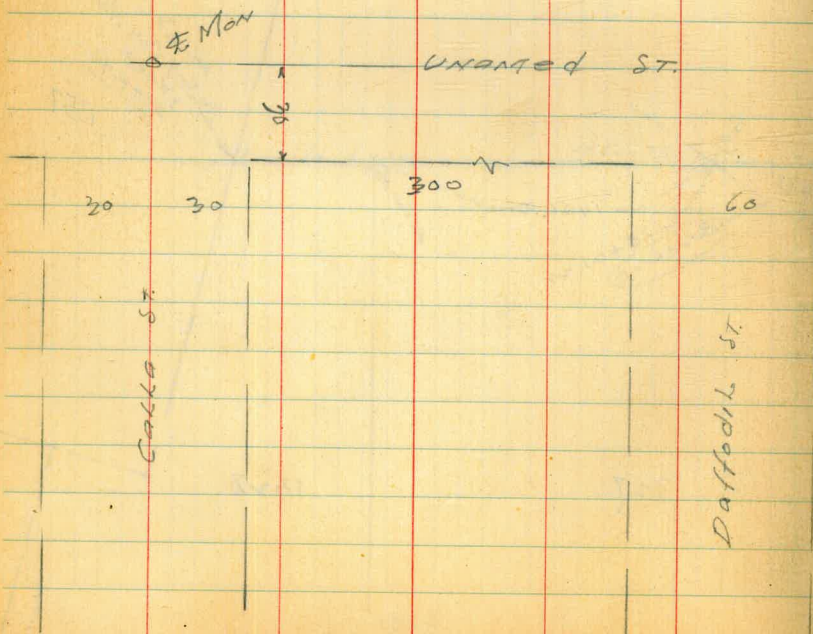 ℄ MON
UNAMED ST.
30 30 300 60
CALLA ST.
Daffodil ST.